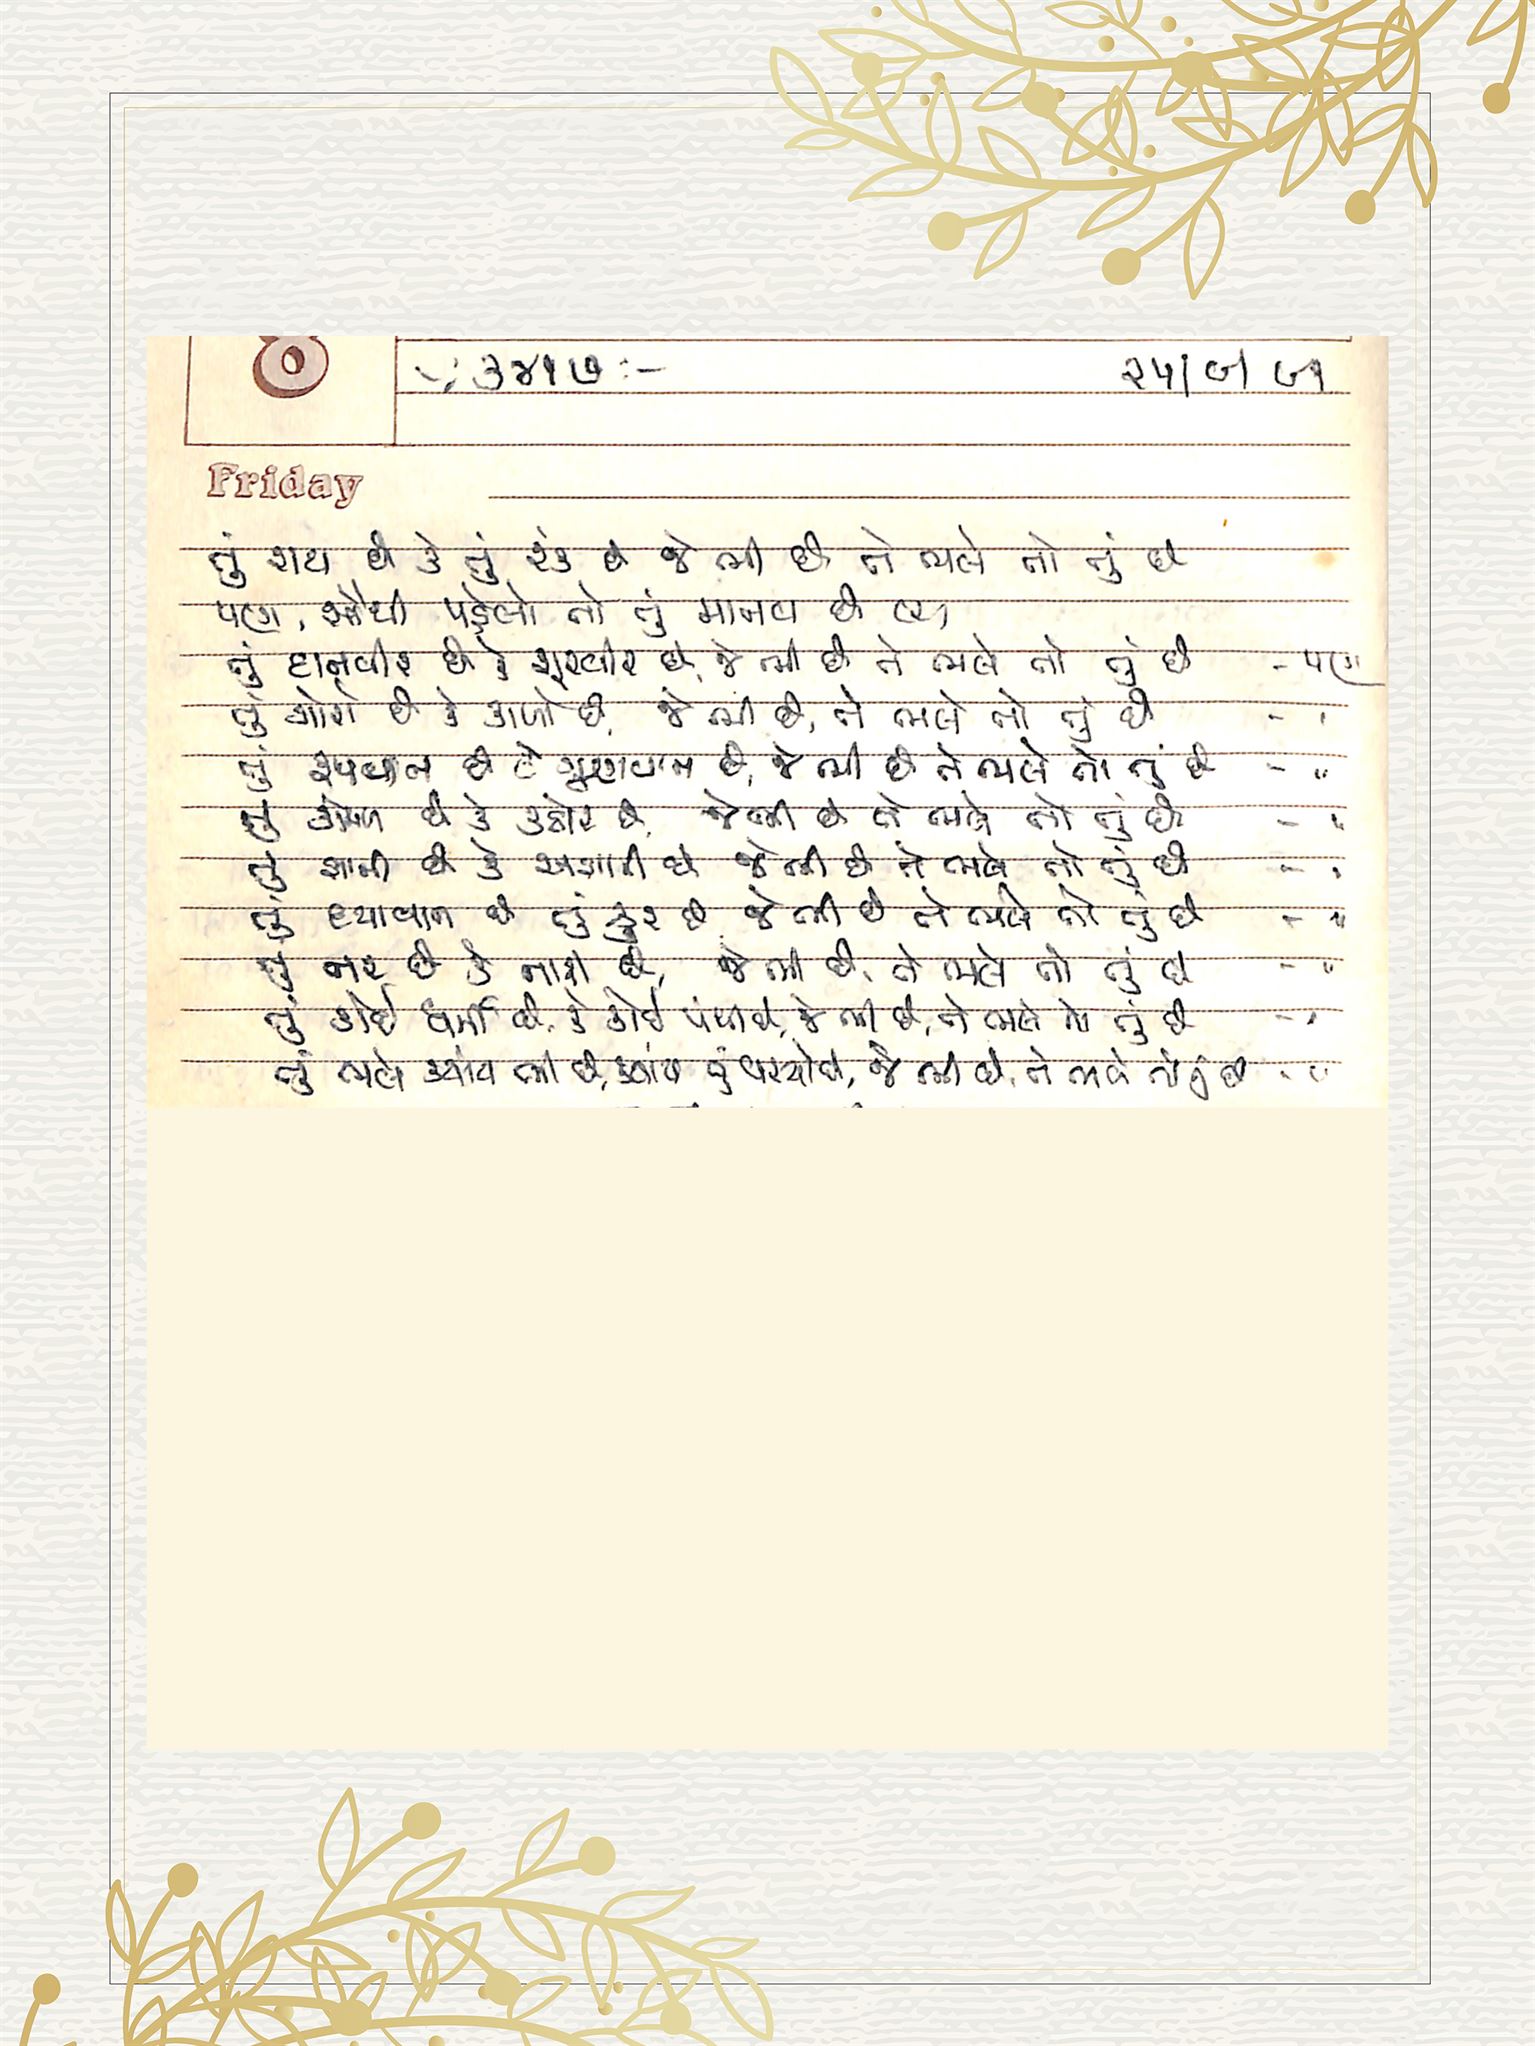 8
-: ૩૪૧૭ :- ૨૫/૭/૭૧
Friday
તું રાય છે કે તું રંક છે જે ભી છે તે ભલે તો તું છે
પણ, સૌથી પહેલો તો તું માનવ છે (૨)
તું દાનવીર છે કે શૂરવીર છે, જે ભી છે તે ભલે તો તું છે - પણ
તું ગોરો છે કે કાળો છે, જે ભી છે, તે ભલે તો તું છે - "
તું રૂપવાન છે કે ગુણવાન છે, જે ભી છે તે ભલે તો તું છે - "
તું કોમળ છે કે કઠોર છે, જે ભી છે તે ભલે તો તું છે - "
તું જ્ઞાની છે કે અજ્ઞાની છે જે ભી છે તે ભલે તો તું છે - "
તું દયાવાન છે તું ક્રુર છે જે ભી છે તે ભલે તો તું છે - "
તું નર છે કે નારી છે, જે ભી છે, તે ભલે તો તું છે - "
તું કોઈ ધર્મી છે, કે કોઈ પંથી છે, જે ભી છે, તે ભલે તો તું છે - "
તું ભલે ક્યાંય ભી છે, ક્યાંય તું વસ્યો છે, જે ભી છે, તે ભલે તો તું છે - "